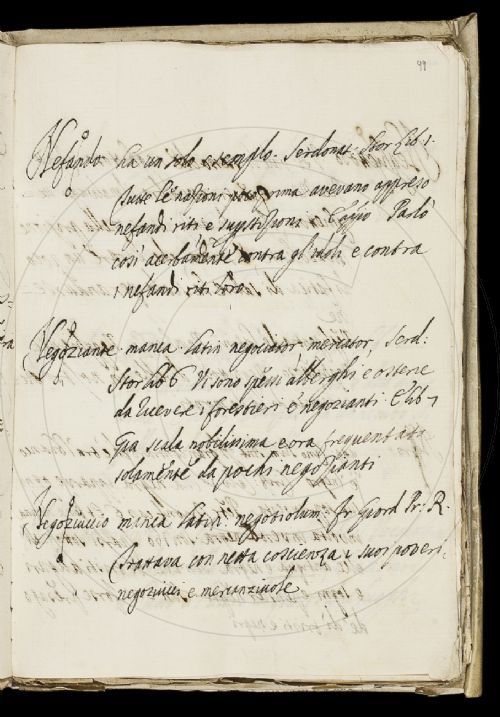 99
Nefando ha un solo esempio. Serdonat. Stor Lib. 1.
tutte le nazioni prima avevano appreso
nefandi riti e Parlò
così acerbamente contra gl'idoli e contra
i nefandi riti loro.
Negoziante manca Latin negociator mercator, Serd:
Stor lib 6 Vi sono spessi alberghi e osterie
da ricevere i forestieri e negozianti E lib 7
scala nobilissima e ora frequentata
solamente da pochi negozianti
Negoziuccio manca Latin: negotiolum. Fr Giord Pr: R.
Trattava con netta coscienza i suoi poveri
negoziucci e mercanziuole